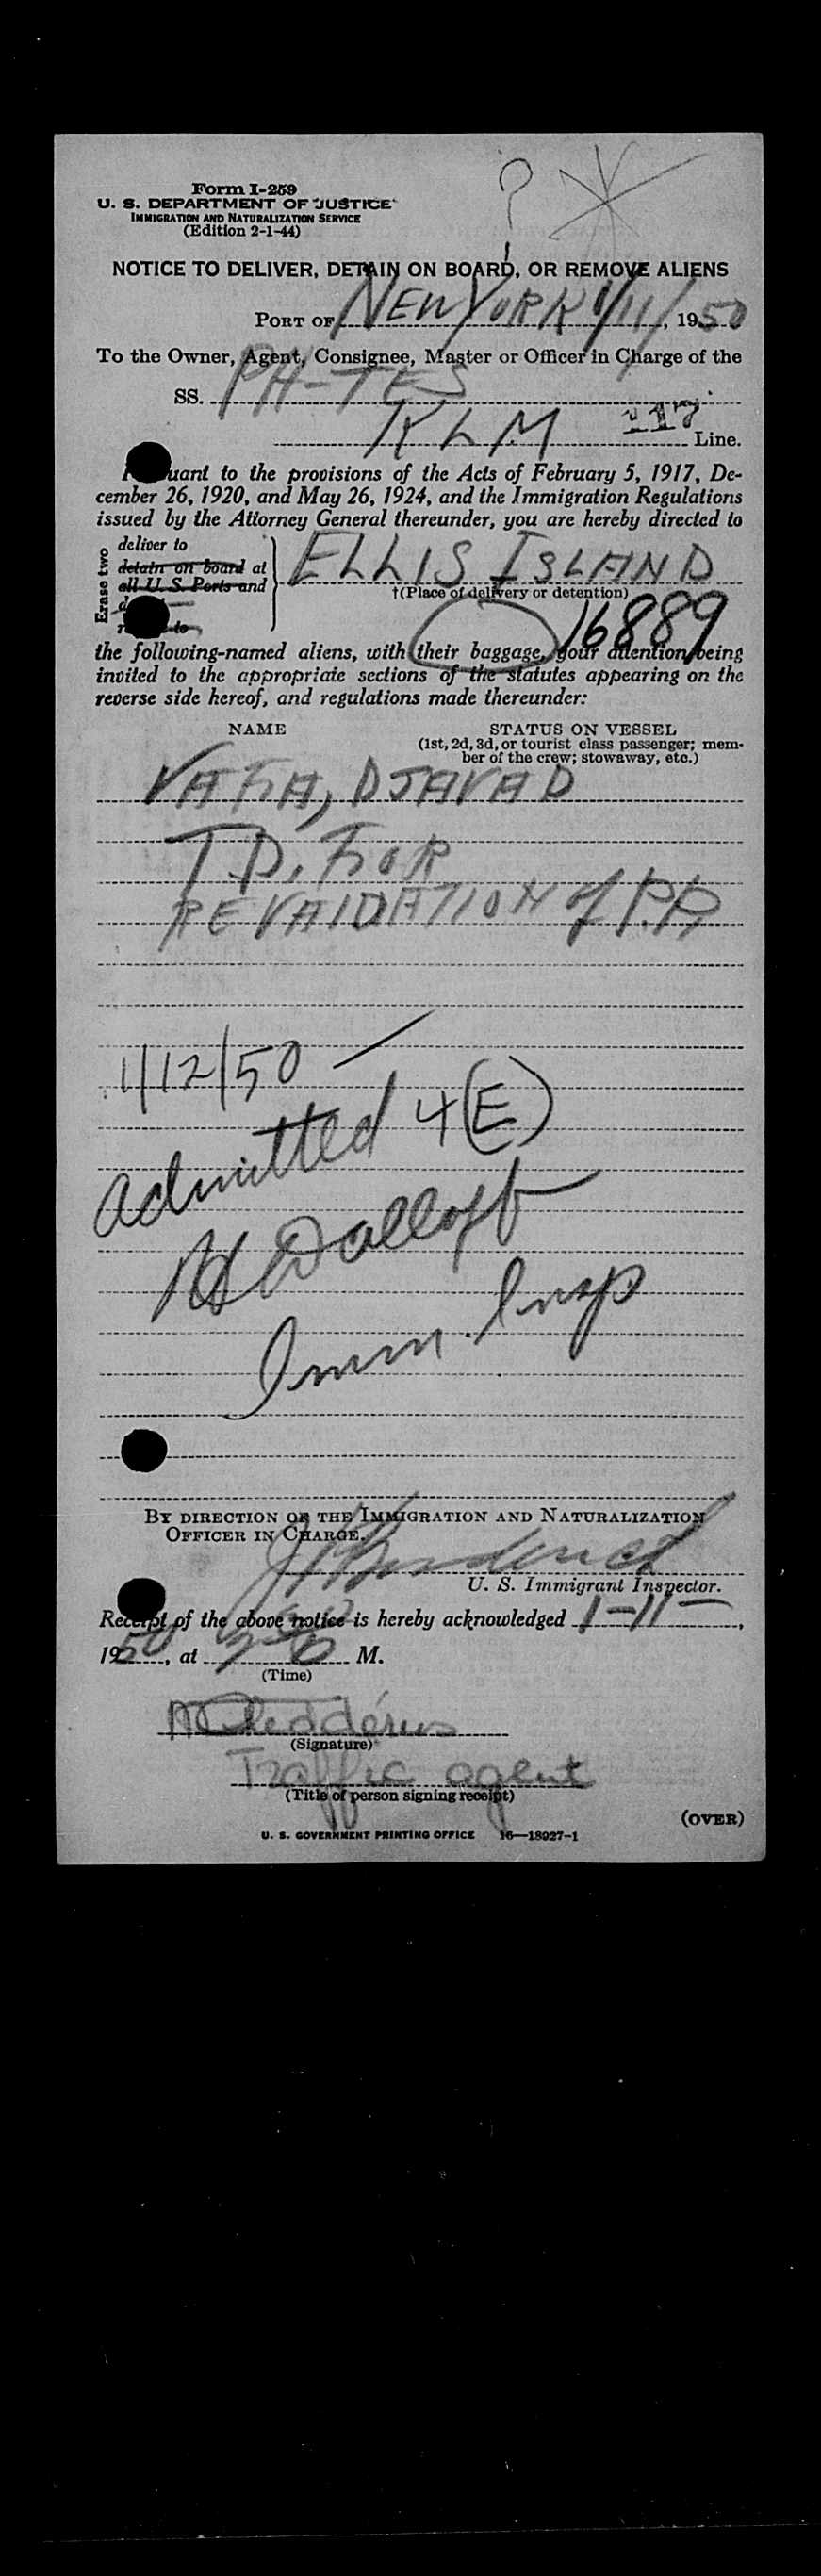 Form I-259
U. S. DEPARTMENT OF JUSTICE
IMMIGRATION AND NATURALIZATION SERVICE
(Edition 2-1-44)
NOTICE TO DELIVER, DETAIN ON BOARD, OR REMOVE ALIENS
PORT OF NEW YORK 1/11/, 1950
To the Owner, Agent, Consignee, Master or Officer in Charge of the
SS. PH-TES
KLM 117 Line.
uant to the provisions of the Acts of February 5, 1917, De-
cember 26, 1920, and May 26, 1924, and the Immigration Regulations
issued by the Attorney General thereunder, you are hereby directed to
Erase two
deliver to
detain on board at
all U. S. Ports and
to
ELLIS ISLAND
†(Place of delivery or detention)
16889
the following-named aliens, with their baggage, your attention being
invited to the appropriate sections of the statutes appearing on the
reverse side hereof, and regulations made thereunder:
NAME STATUS ON VESSEL
(1st, 2d, 3d, or tourist class passenger; mem-
ber of the crew; stowaway, etc.)
VAFA, DJAVAD
T.D. FOR
REVAIDATION of P.P.
1/12/50 —
admitted 4(E)
Imm. Insp
BY DIRECTION OF THE IMMIGRATION AND NATURALIZATION
OFFICER IN CHARGE.
U. S. Immigrant Inspector.
Receipt of the above notice is hereby acknowledged 1-11-,
1950, at M.
(Time)
(Signature)
Traffic agent
(Title of person signing receipt)
(OVER)
U. S. GOVERNMENT PRINTING OFFICE 16—18927-1